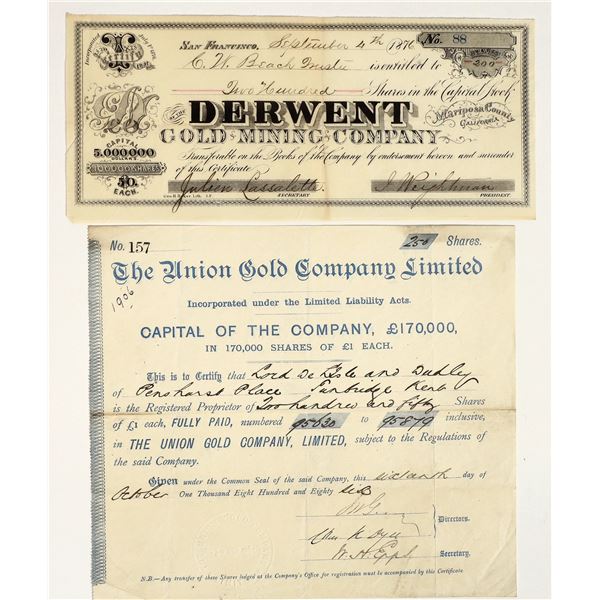 San Francisco, September 4th 1876 No. 88
Incorporated July 1st 1876
C. W. Beach Trustee is entitled to
200
Two Hundred Shares in the Capital Stock
OF THE
DERWENT
GOLD MINING COMPANY
Mariposa County
CALIFORNIA.
CAPITAL
5.000000
DOLLARS
100000 SHARES
50.
EACH.
Transferable on the Books of the Company by endorsement hereon and surrender
of this Certificate.
Julien Lassalette
SECRETARY
J. Weightman
PRESIDENT.
No. 157 250 Shares.
The Union Gold Company Limited
1906
Incorporated under the Limited Liability Acts.
CAPITAL OF THE COMPANY, £170,000,
IN 170,000 SHARES OF £1 EACH.
This is to Certify that Lord De L'Isle and Dudley
of Penshurst Place Tunbridge Kent
is the Registered Proprietor of Two hundred and fifty Shares
of £1 each, FULLY PAID, numbered 95630 to 95879 inclusive,
in THE UNION GOLD COMPANY, LIMITED, subject to the Regulations of
the said Company.
Given under the Common Seal of the said Company, this sixteenth day of
October One Thousand Eight Hundred and Eighty six
Directors.
Secretary.
N.B.—Any transfer of these Shares lodged at the Company's Office for registration must be accompanied by this Certificate